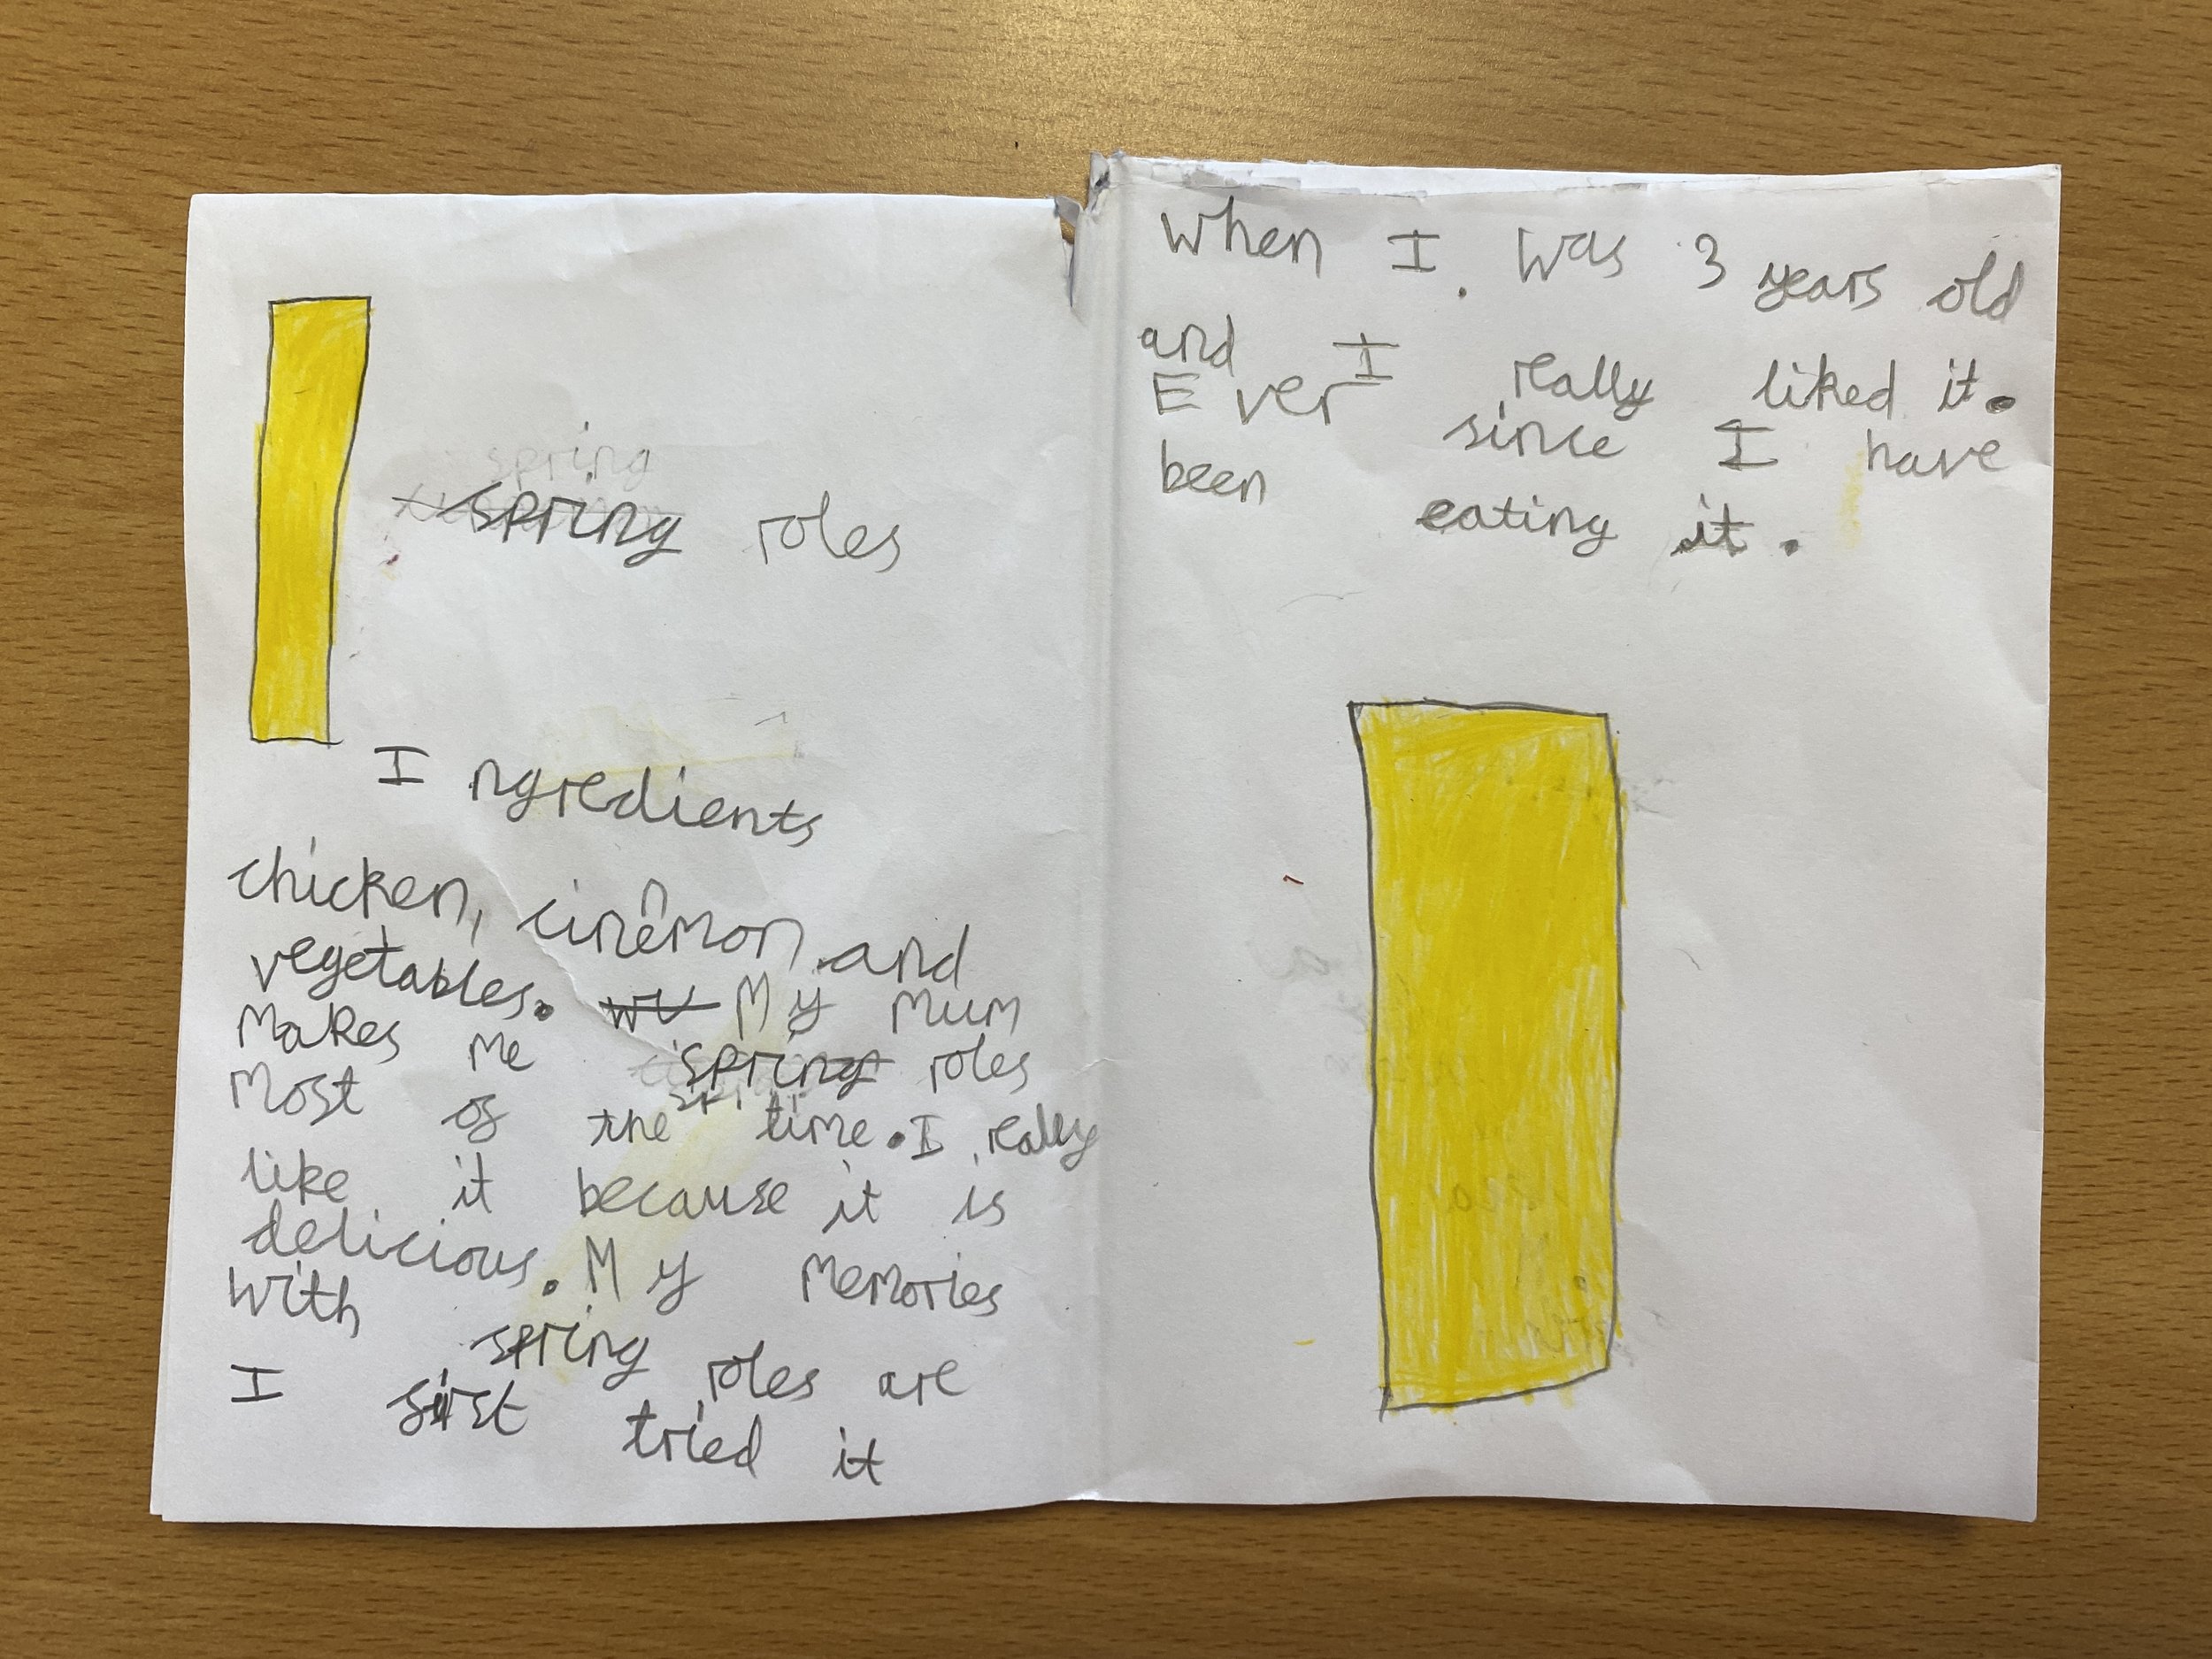 spring
spring roles
Ingredients
chicken, cinemon and
vegetables. My mum
makes me spring roles
most of the time. I really
like it because it is
delicious. My memories
with spring roles are
I first tried it
When I was 3 years old
and I really liked it.
Ever since I have
been eating it.